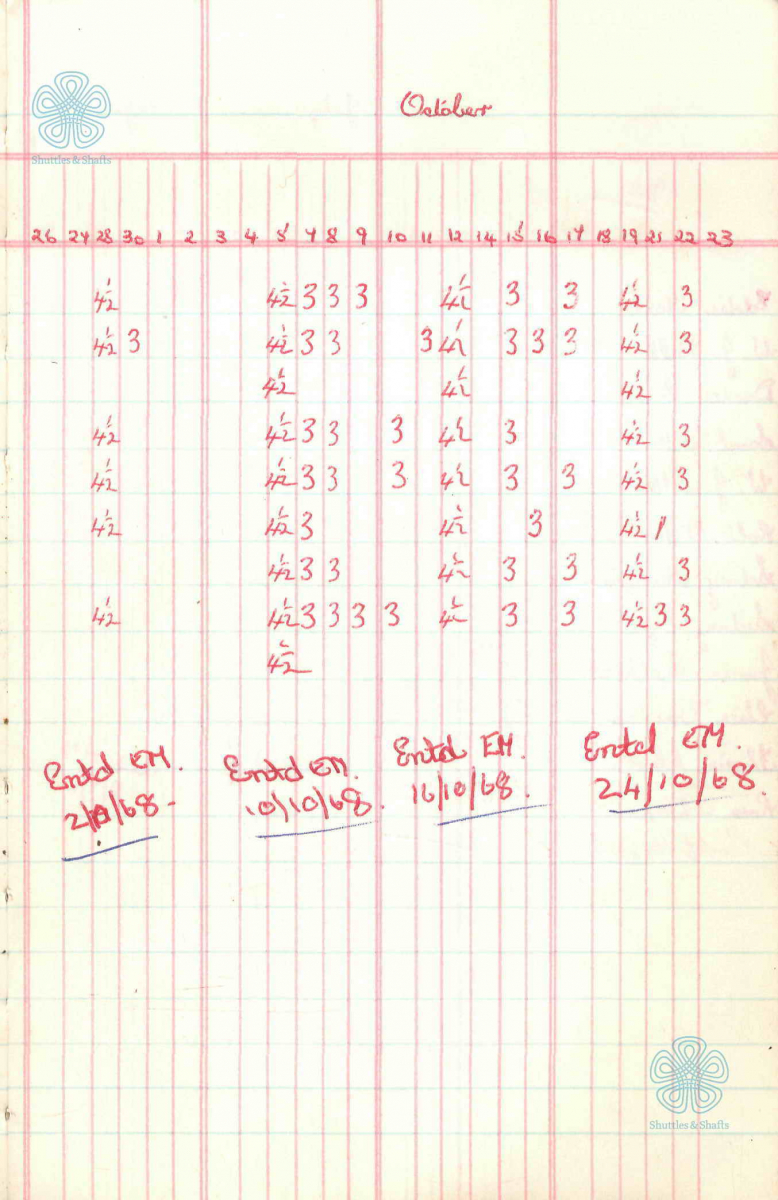 October
Shuttles & Shafts
26 27 28 30 1 2 3 4 5 7 8 9 10 11 12 14 15 16 17 18 19 21 22 23
4½ 4½ 3 3 3 4½ 3 3 4½ 3
4½ 3 4½ 3 3 3 4½ 3 3 3 4½ 3
4½ 4½ 4½
4½ 4½ 3 3 3 4½ 3 4½ 3
4½ 4½ 3 3 3 4½ 3 3 4½ 3
4½ 4½ 3 4½ 3 4½ 1
4½ 3 3 4½ 3 3 4½ 3
4½ 4½ 3 3 3 3 4½ 3 3 4½ 3 3
4½
Entd EM. Entd EM. Entd EM. Entd EM.
2/10/68 10/10/68. 16/10/68. 24/10/68.
Shuttles & Shafts